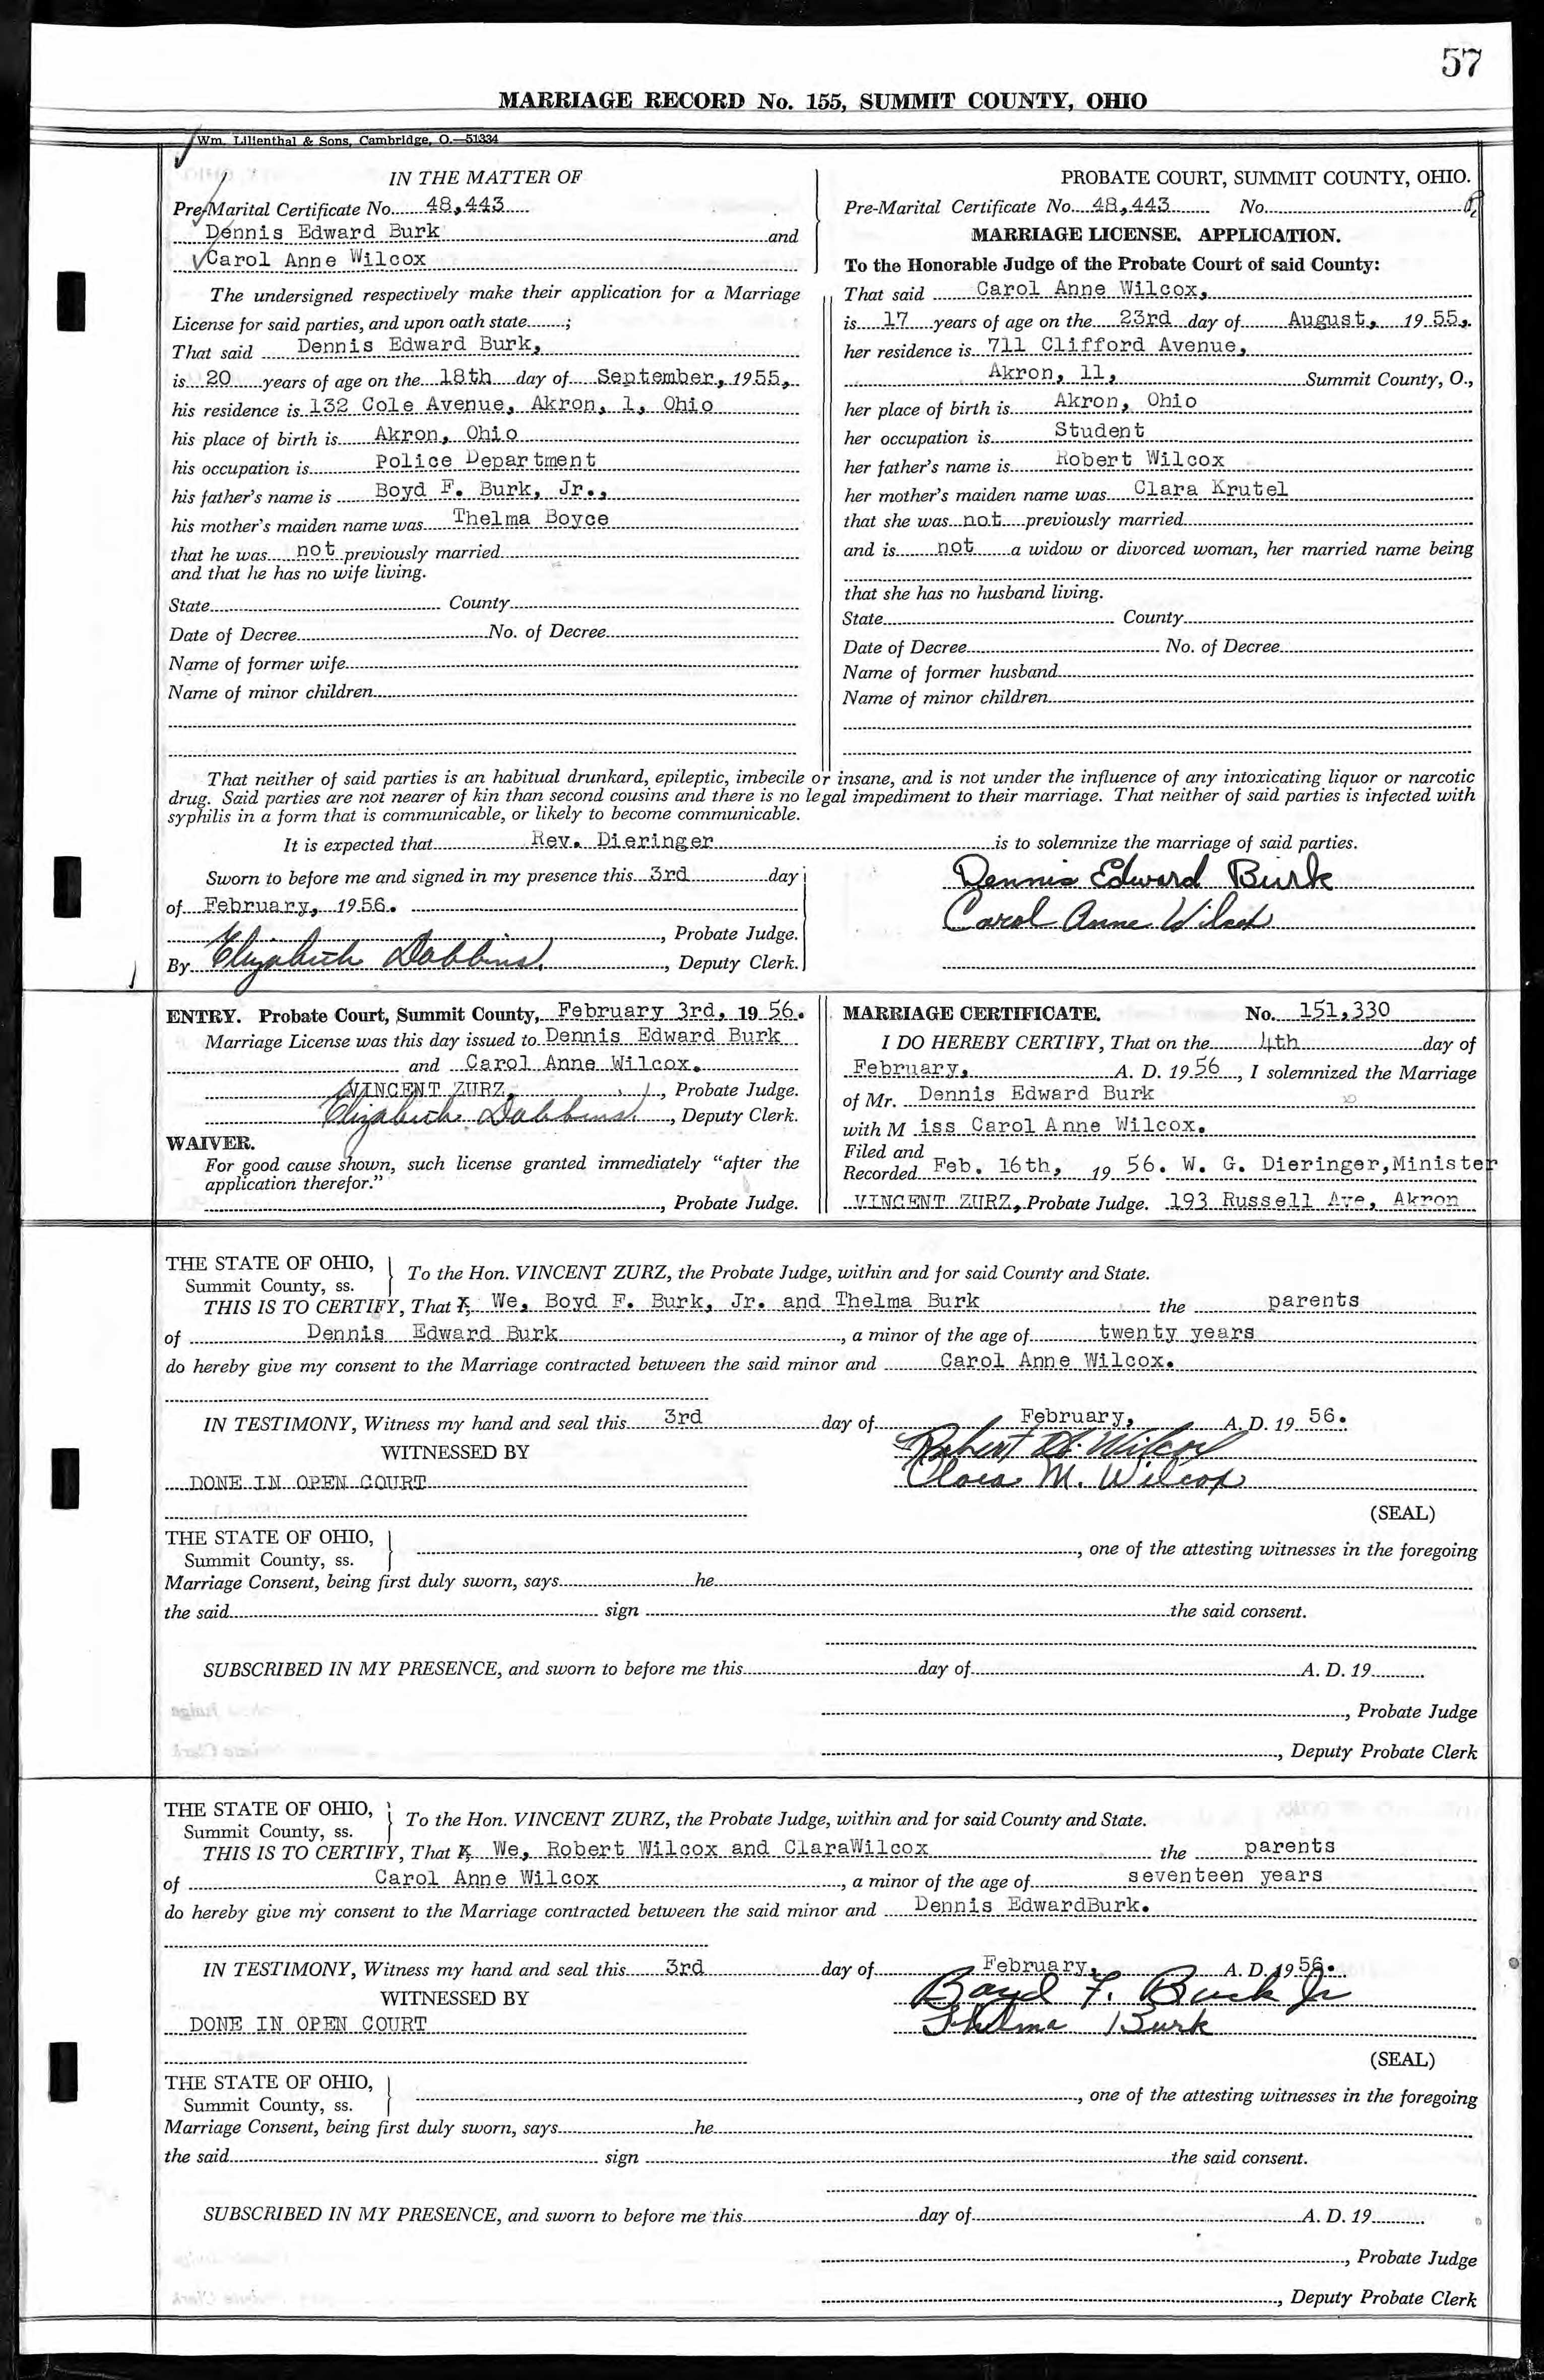 57
MARRIAGE RECORD No. 155, SUMMIT COUNTY, OHIO
Wm. Lilienthal & Sons, Cambridge, O.—51334
IN THE MATTER OF
Pre-Marital Certificate No. 48,443
Dennis Edward Burk and
Carol Anne Wilcox
The undersigned respectively make their application for a Marriage
License for said parties, and upon oath state........;
That said Dennis Edward Burk,
is 20 years of age on the 18th day of September, 1955,
his residence is 132 Cole Avenue, Akron, 1, Ohio
his place of birth is Akron, Ohio
his occupation is Police Department
his father's name is Boyd F. Burk, Jr.,
his mother's maiden name was Thelma Boyce
that he was not previously married
and that he has no wife living.
State County
Date of Decree No. of Decree
Name of former wife
Name of minor children
PROBATE COURT, SUMMIT COUNTY, OHIO.
Pre-Marital Certificate No. 48,443 No.
MARRIAGE LICENSE. APPLICATION.
To the Honorable Judge of the Probate Court of said County:
That said Carol Anne Wilcox,
is 17 years of age on the 23rd day of August, 19 55,.
her residence is 711 Clifford Avenue,
Akron, 11, Summit County, O.,
her place of birth is Akron, Ohio
her occupation is Student
her father's name is Robert Wilcox
her mother's maiden name was Clara Krutel
that she was not previously married
and is not a widow or divorced woman, her married name being
that she has no husband living.
State County
Date of Decree No. of Decree
Name of former husband
Name of minor children
That neither of said parties is an habitual drunkard, epileptic, imbecile or insane, and is not under the influence of any intoxicating liquor or narcotic
drug. Said parties are not nearer of kin than second cousins and there is no legal impediment to their marriage. That neither of said parties is infected with
syphilis in a form that is communicable, or likely to become communicable.
It is expected that Rev. Dieringer is to solemnize the marriage of said parties.
Sworn to before me and signed in my presence this 3rd day
of February, 1956.
, Probate Judge.
By Elizabeth Dobbins, Deputy Clerk.
Dennis Edward Burk
Carol Anne Wilcox
ENTRY. Probate Court, Summit County, February 3rd, 19 56.
Marriage License was this day issued to Dennis Edward Burk
and Carol Anne Wilcox.
VINCENT ZURZ, Probate Judge.
Elizabeth Dobbins, Deputy Clerk.
WAIVER.
For good cause shown, such license granted immediately “after the
application therefor.”
, Probate Judge.
MARRIAGE CERTIFICATE. No. 151,330
I DO HEREBY CERTIFY, That on the 4th day of
February, A. D. 19 56, I solemnized the Marriage
of Mr. Dennis Edward Burk
with M iss Carol Anne Wilcox.
Filed and
Recorded Feb. 16th, 19 56. W. G. Dieringer, Minister
VINCENT ZURZ, Probate Judge. 193 Russell Ave, Akron
THE STATE OF OHIO,
Summit County, ss.
To the Hon. VINCENT ZURZ, the Probate Judge, within and for said County and State.
THIS IS TO CERTIFY, That I, We, Boyd F. Burk, Jr. and Thelma Burk the parents
of Dennis Edward Burk, a minor of the age of twenty years
do hereby give my consent to the Marriage contracted between the said minor and Carol Anne Wilcox.
IN TESTIMONY, Witness my hand and seal this 3rd day of February, A. D. 19 56.
WITNESSED BY
Robert W. Wilcox
DONE IN OPEN COURT
Clara M. Wilcox
(SEAL)
THE STATE OF OHIO,
Summit County, ss.
, one of the attesting witnesses in the foregoing
Marriage Consent, being first duly sworn, says he
the said sign the said consent.
SUBSCRIBED IN MY PRESENCE, and sworn to before me this day of A. D. 19
, Probate Judge
, Deputy Probate Clerk
THE STATE OF OHIO,
Summit County, ss.
To the Hon. VINCENT ZURZ, the Probate Judge, within and for said County and State.
THIS IS TO CERTIFY, That I, We, Robert Wilcox and ClaraWilcox the parents
of Carol Anne Wilcox, a minor of the age of seventeen years
do hereby give my consent to the Marriage contracted between the said minor and Dennis EdwardBurk.
IN TESTIMONY, Witness my hand and seal this 3rd day of February, A. D. 19 56.
WITNESSED BY
Boyd F. Burk Jr
DONE IN OPEN COURT
Thelma Burk
(SEAL)
THE STATE OF OHIO,
Summit County, ss.
, one of the attesting witnesses in the foregoing
Marriage Consent, being first duly sworn, says he
the said sign the said consent.
SUBSCRIBED IN MY PRESENCE, and sworn to before me this day of A. D. 19
, Probate Judge
, Deputy Probate Clerk